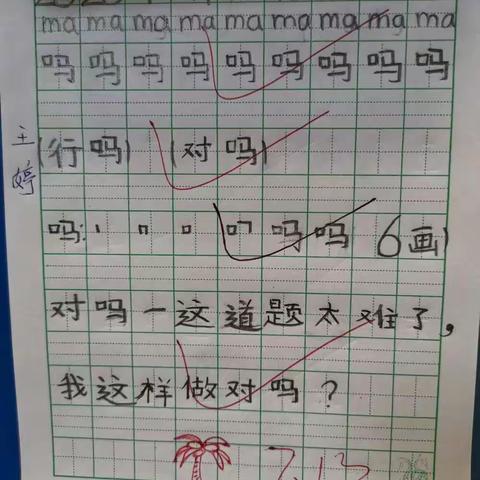 ma ma ma ma ma ma ma ma ma
吗 吗 吗 吗 吗 吗 吗 吗 吗
王婷
(行吗) (对吗)
吗: 吗 吗 6画)
对吗一这道题太难了,
我这样做对吗?